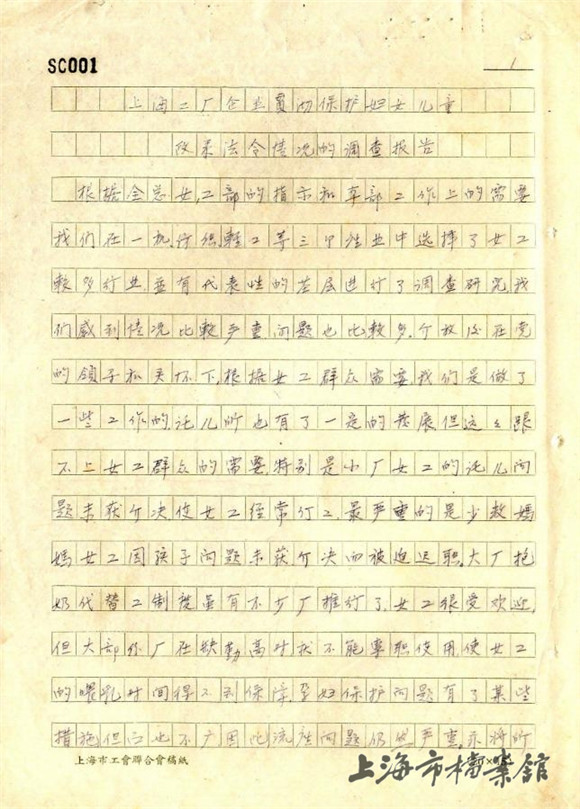 SC001
1
上海工厂企业贯彻保护妇女儿童
政策法令情况的调查报告
根据全总女工部的指示和本部工作上的需要
我们在一机,纺织,轻工等三个产业中选择了女工
较多行业,並有代表性的基层进行了调查研究我
们感到情况比较严重问题也比较多,介放后在党
的领导和关怀下,根据女工群众需要我们是做了
一些工作的,讬儿所也有了一定的发展但这远跟
不上女工群众的需要,特别是小厂女工的讬儿问
题未获介决使女工经常停工,最严重的是少数妈
妈女工因孩子问题未获介决而被迫退职,大厂抱
奶代替工制度虽有不少厂推行了,女工很受欢迎,
但大部份厂在缺勤高时就不能专职使用使女工
的喂乳时间得不到保障,孕妇保护问题有了某些
措施但已也不广因此流产问题仍然严重,亦将所
上海市工會聯合會稿紙
上海市檔案館